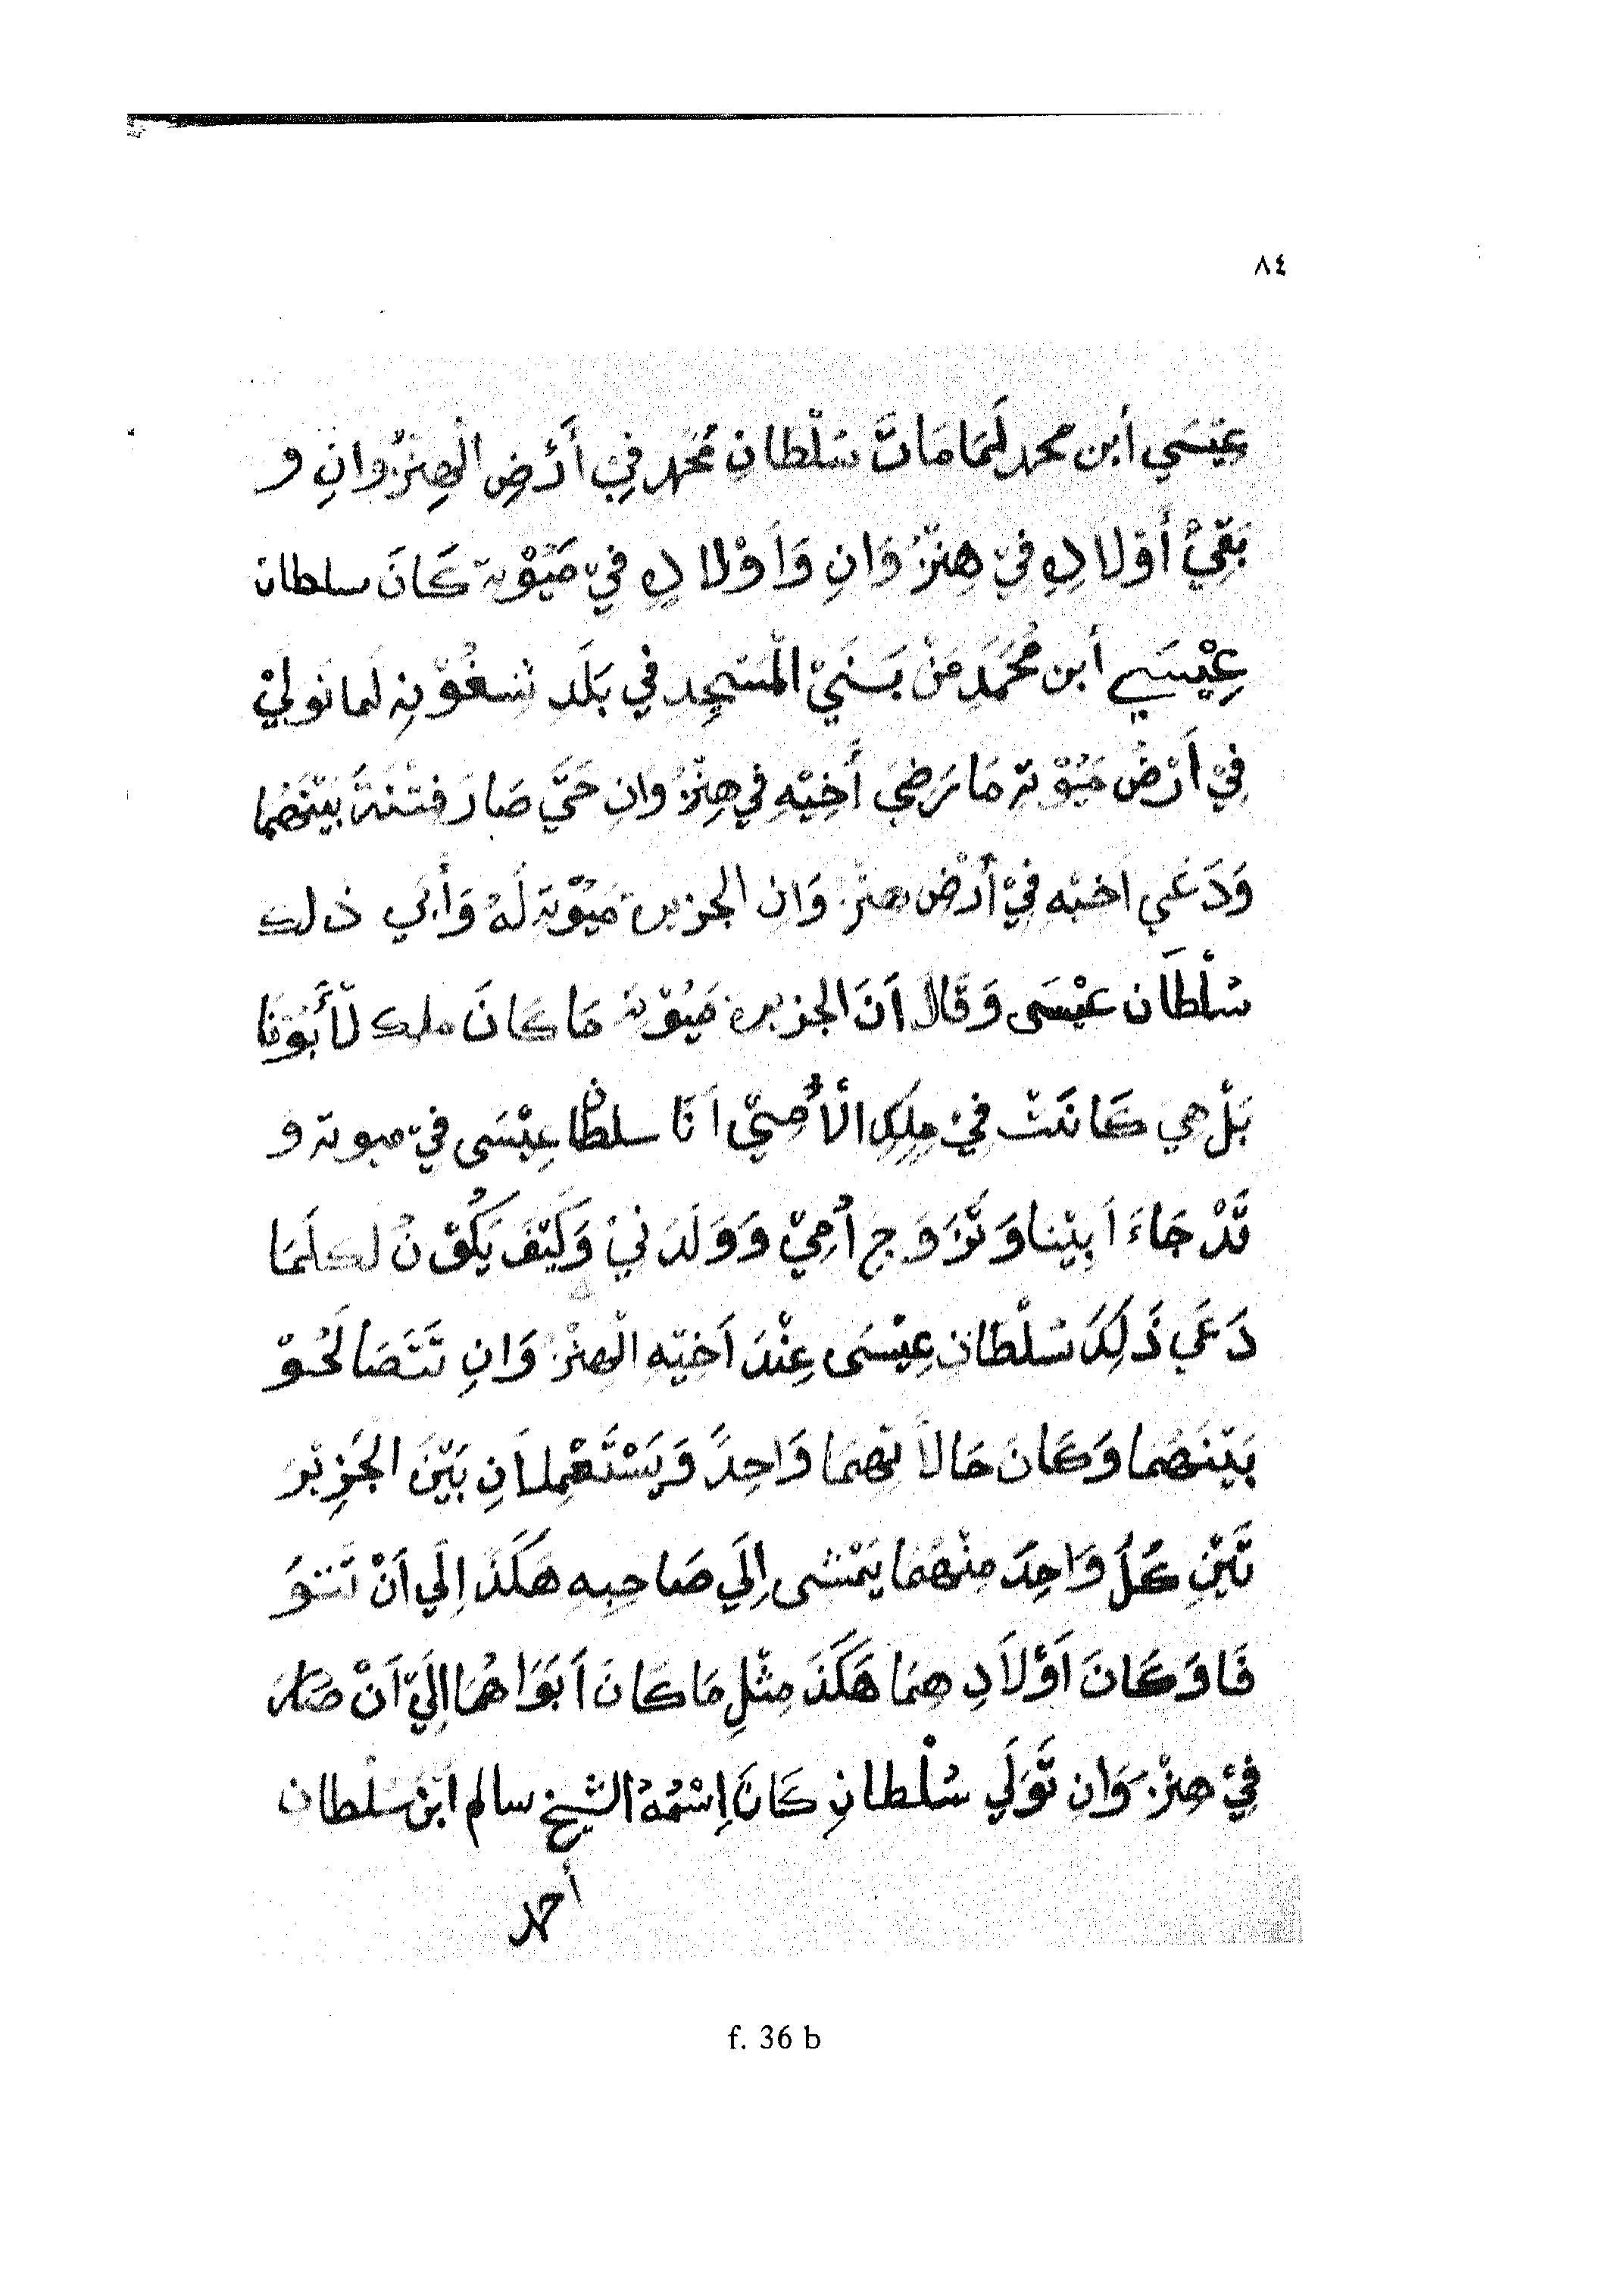 ٨٤
عِيْسَي أبن محمد لَمَا مَاتَ سُلْطانِ مُحَمد فِيْ أَرْضِ الْهِنْزُوانِ و
بَقِيْ أَوْلادِهِ فِيْ هِنْزُوَانِ وَأَوْلادِهِ فِيْ مَيُوْتَة كَانَ سلطان
عِيْسَي أبن مُحَمَدِ مَنْ بَنَيْ الْمَسْجِد في بَلَد شِنغُوْنِ لَما تَولِيْ
فِيْ اَرْضْ مَيُوْتَةِ مَا رَضِيَ أَخِيْهِ في هِنْزُوَانِ حَتَّي صَارَ فِتْنَةً بَيْنَهُما
وَدَعَي اَخيْه فِيْ أَرْض هنْزُوَان الجزيرة مَيُوْتَة لَهُ وَأَبَي ذلك
سُلْطَان عيْسَى وَقَالَ اَنَ الجزيرة مَيُوْتَة مَا كَانَ ملك لأَبُوْنَا
بَلْ هِي كَانَتْ فِيْ مِلِكِ الْأُمِيّ اَنَا سلطان عِيْسَى فِيْ ميوتة و
قَدْ جَاءَ اَبِيْنا وَتَزَوَج اُمِيْ وَوَلَدَنيْ وَكَيْفَ يَكُوْنُ لكَ لَمَا
دَعَي ذَلِكَ سُلْطان عِيْسَى عِنْدَ اَخيْه الْهِنْزُوَانِ تَتَصَالَحُوْ
بَيْنَهُمَا وَكَانَ حَالاَتهِمَا وَاحِدً وَيَسْتَعْمِلاَنِ بَيْنَ الجَزِيْرَ
تَيْنِ كُلُ وَاحِدَ مِنْهُمَا يَمْشى اِلَي صَاحِبِهِ هَكَذَ اِلَي اَنْ تَتَوَ
فَا وَكَانَ اَوْلاَدِ هِمَا هَكَذَ مِثْلِ مَا كَانَ اَبَوَاهُمَا اِلَيْ اَنْ صَارَ
فِيْ هِنْزُوَانِ تَوَلَي سُلْطانِ كَانَ اِسْمُهُ الشيخ سالم اَبْنُ سُلْطان
أحمد
f. 36 b